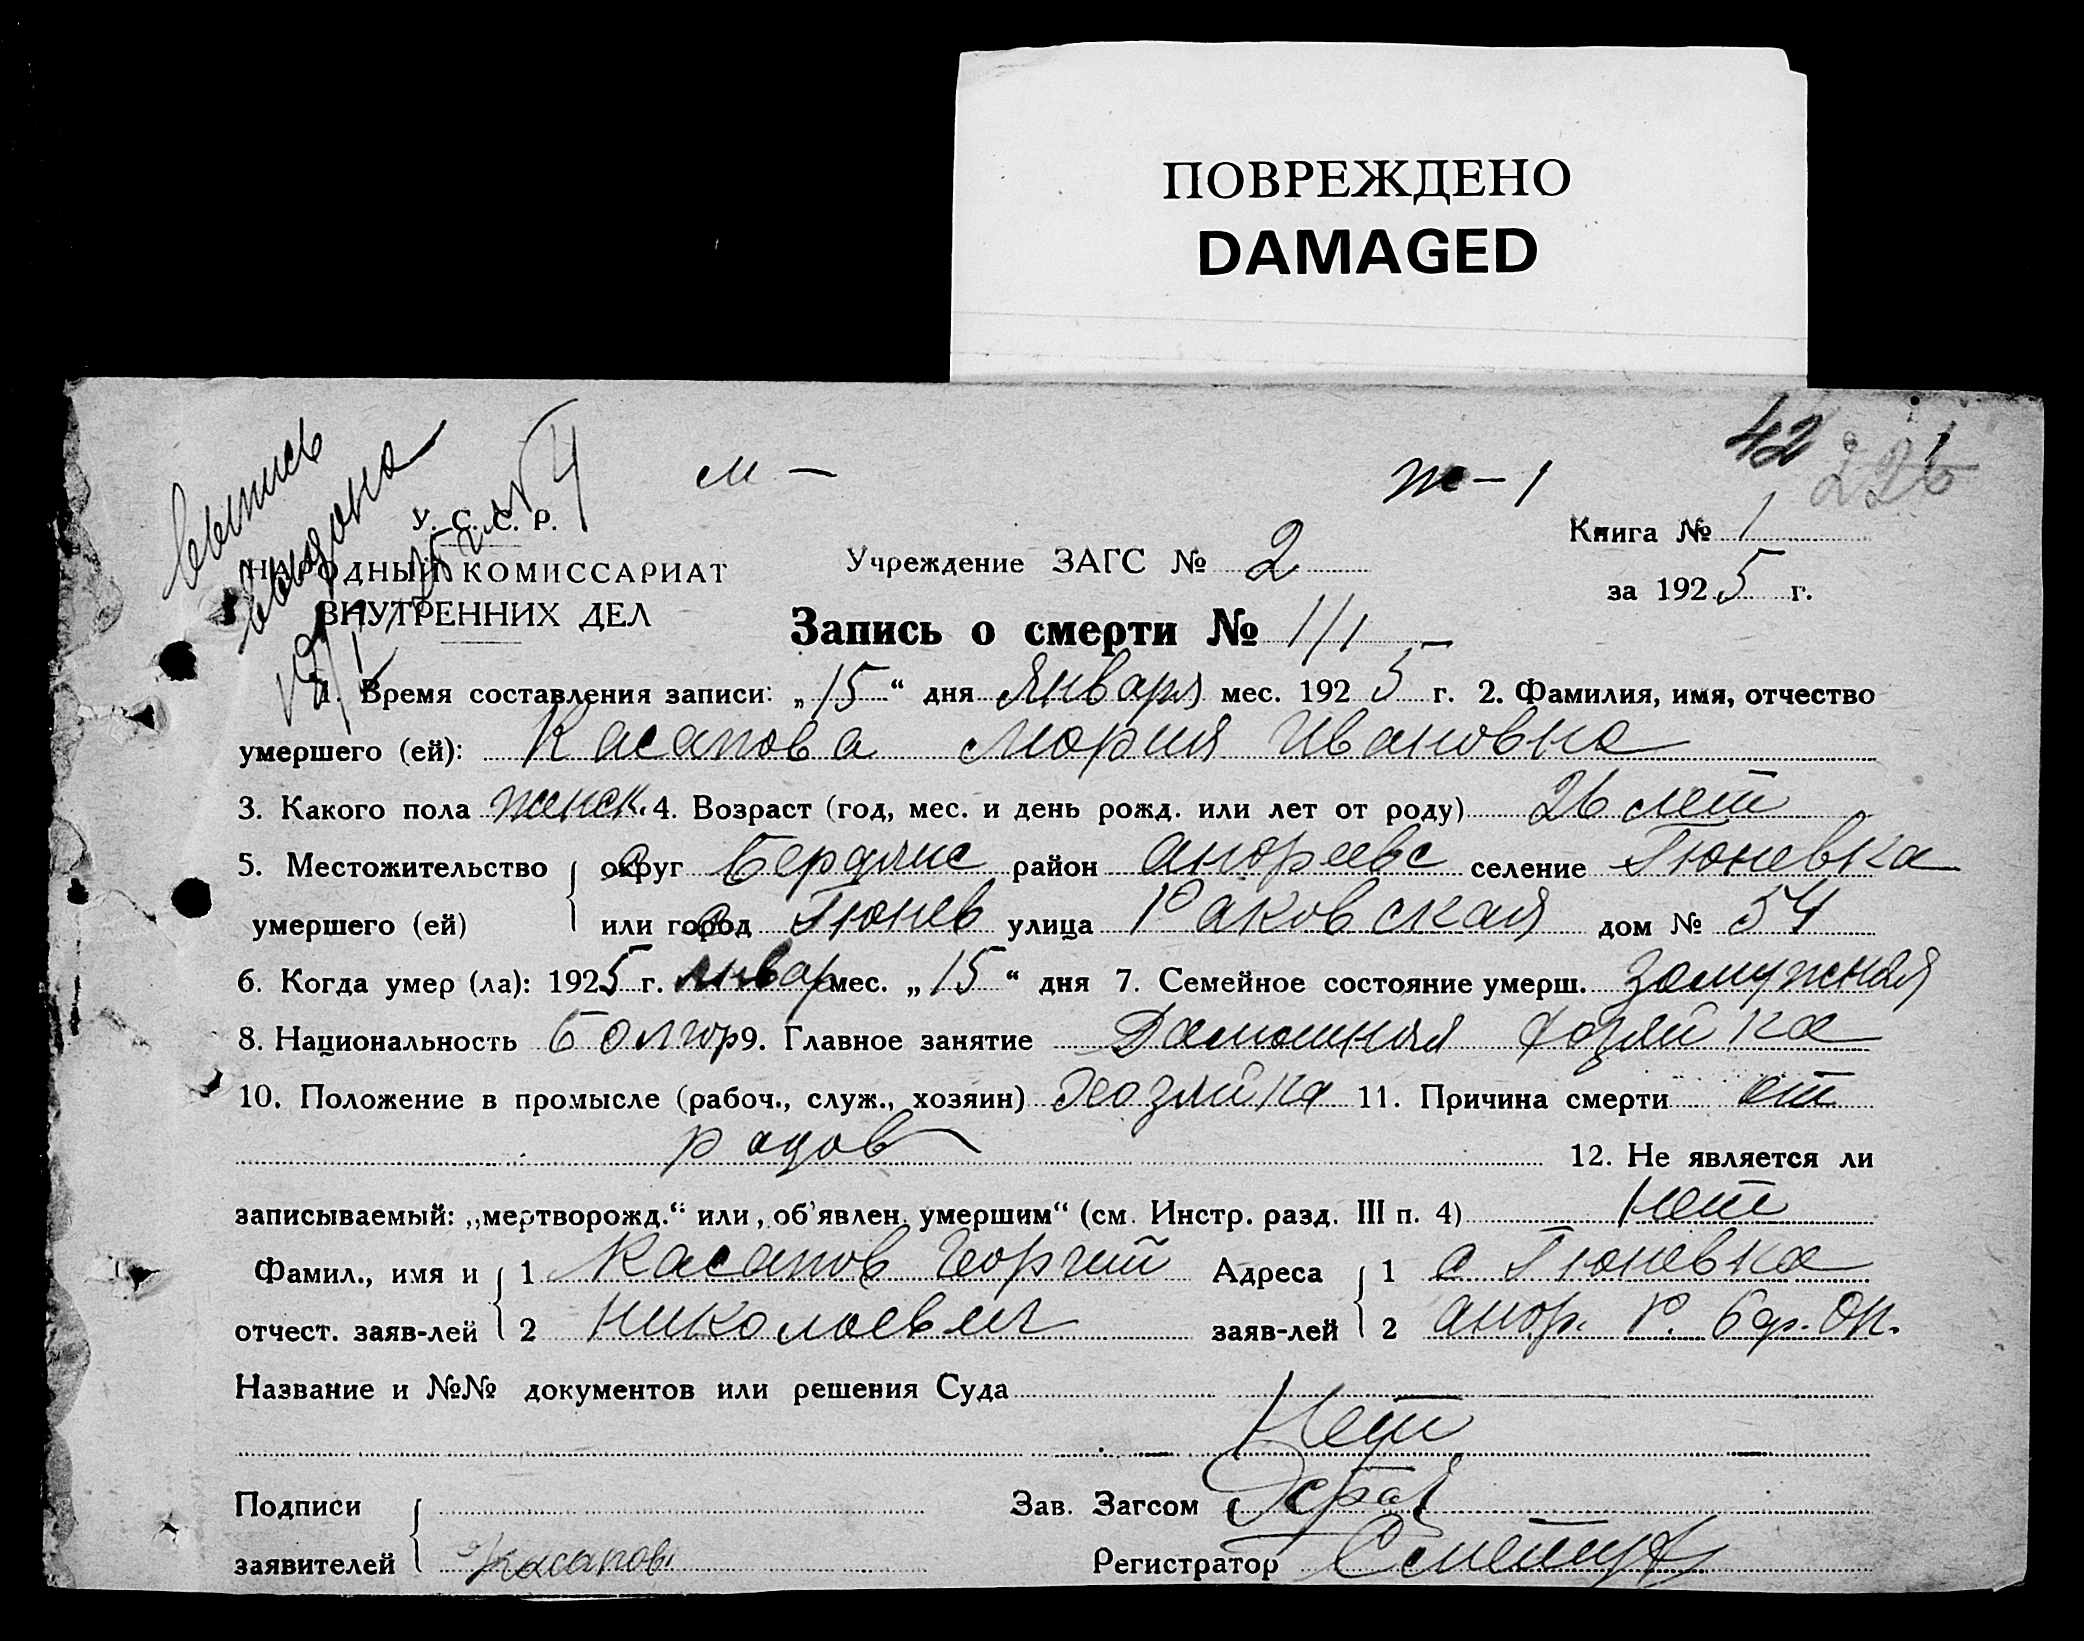 ПОВРЕЖДЕНО
DAMAGED
42 226
м — ж – 1
Выпись
выдона
У. С. С. Р.
НАРОДНЫЙ КОМИССАРИАТ
ВНУТРЕННИХ ДЕЛ
Учреждение ЗАГС № 2
Книга № 1
за 1925 г.
Запись о смерти № 1/1 —
1. Время составления записи: „15“ дня Января мес. 1925 г. 2. Фамилия, имя, отчество
умершего (ей): Касапова Мория Ивановна
3. Какого пола женск. 4. Возраст (год, мес. и день рожд. или лет от роду) 26 лет
5. Местожительство округ Бердянс район Андреевс селение Гюневка
умершего (ей) или город Гюнев улица Раковская дом № 54
6. Когда умер (ла): 1925 г. Январ мес. „15“ дня 7. Семейное состояние умерш. Замужная
8. Национальность Болгор 9. Главное занятие Дамошная Хозяйка
10. Положение в промысле (рабоч., служ., хозяин) Хозяйка 11. Причина смерти от
родов 12. Не является ли
записываемый: „мертворожд.“ или „об'явлен. умершим“ (см. Инстр. разд. III п. 4) Нет
Фамил., имя и 1 Касапов Георгий Адреса 1 с Гюневка
отчест. заяв-лей 2 Николоевич заяв-лей 2 Андр. Р. Бдр. Ок.
Название и №№ документов или решения Суда
Нет
Подписи Зав. Загсом
заявителей Касапов Регистратор